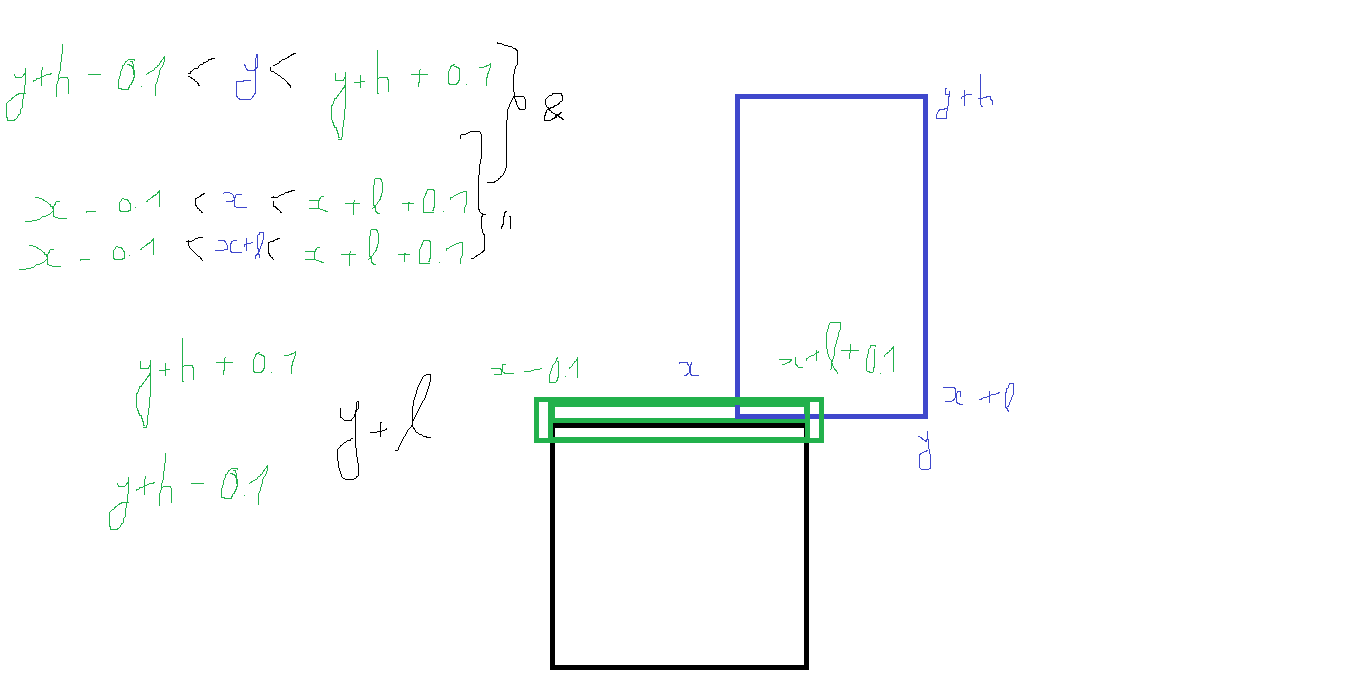 y+h - 0.1 < y < y+h + 0.1
&
x - 0.1 < x < x + l + 0.1
x - 0.1 < x+l < x + l + 0.1
y+h
y+h + 0.1
x - 0.1
x
x+l+0.1
y+l
x + l
y
y+h - 0.1